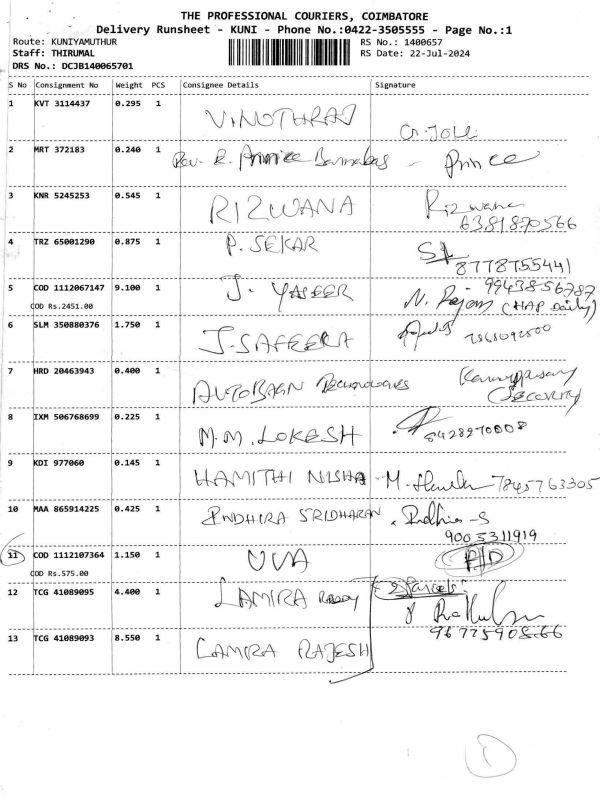 THE PROFESSIONAL COURIERS, COIMBATORE
Delivery Runsheet - KUNI - Phone No.:0422-3505555 - Page No.:1
Route: KUNIYAMUTHUR RS No.: 1400657
Staff: THIRUMAL RS Date: 22-Jul-2024
DRS No.: DCJB140065701
S No Consignment No Weight PCS Consignee Details Signature
1 KVT 3114437 0.295 1 VINOTHRAJ
2 MRT 372183 0.240 1 Rev. R. Prince Barnabas - Prince
3 KNR 5245253 0.545 1 RIZWANA Rizwana
6381870566
4 TRZ 65001290 0.875 1 P. SEKAR
8778755441
5 COD 1112067147 9.100 1 J. YASEER 9943856787
COD Rs.2451.00 N. Rajan (HAP Daily)
6 SLM 350880376 1.750 1 J. SAFEERA
7 HRD 20463943 0.400 1 AUTOBAGN Technologies
Security
8 IXM 506768699 0.225 1 M.M. LOKESH
8428970008
9 KDI 977060 0.145 1 HAMITHI NISHA - M. 7845763305
10 MAA 865914225 0.425 1 INDHIRA SRIDHARAN
9005311919
11 COD 1112107364 1.150 1 UVA
COD Rs.575.00
12 TCG 41089095 4.400 1 LAMIRA 2 Parcels
13 TCG 41089093 8.550 1 LAMIRA RAJESH
1